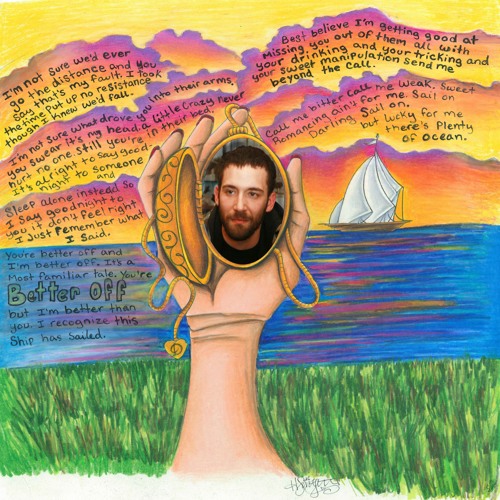 I'm not sure we'd ever
go the distance and you
say that's my fault. I took
the time, put up no resistance
though I knew we'd fall.
I'm not sure what drove you into their arms,
you swear it's my head, a little crazy never
hurt no one still you're in their bed.
It's alright to say good-
night to someone
Sleep alone instead. So
I say goodnight to
you it don't feel right
I Just remember what
I Said.
You're better off and
I'm better off. It's a
Most familiar tale. You're
Better Off
but I'm better than
you. I recognize this
Ship has sailed.
Best believe I'm getting good at
Missing you out of them all with
your drinking and your tricking and
your sweet manipulation send me
beyond the call.
Call me bitter call me weak. Sweet
Romancing ain't for me. Sail on
Darling sail on.
but lucky for me
there's plenty
of ocean.